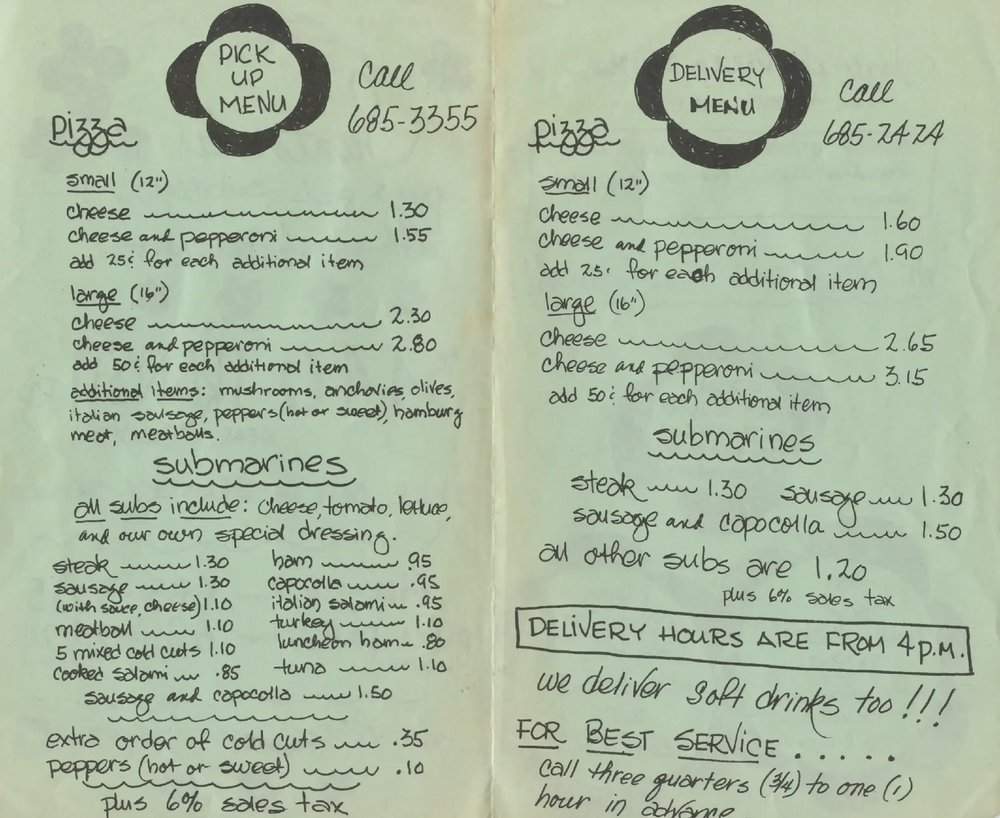 PICK
UP
MENU
Call
685-3355
pizza
small (12")
cheese 1.30
cheese and pepperoni 1.55
add 25¢ for each additional item
large (16")
cheese 2.30
cheese and pepperoni 2.80
add 50¢ for each additional item
additional items: mushrooms, anchovies, olives,
italian sausage, peppers (hot or sweet), hamburg
meat, meatballs.
submarines
all subs include: cheese, tomato, lettuce,
and our own special dressing.
steak 1.30
sausage 1.30
(with sauce, cheese) 1.10
meatball 1.10
5 mixed cold cuts 1.10
cooked salami .85
ham .95
capocolla .95
italian salami .95
turkey 1.10
luncheon ham .80
tuna 1.10
sausage and capocolla 1.50
extra order of cold cuts .35
peppers (hot or sweet) .10
plus 6% sales tax
DELIVERY
MENU
Call
685-2424
pizza
small (12")
cheese 1.60
cheese and pepperoni 1.90
add 25¢ for each additional item
large (16")
cheese 2.65
cheese and pepperoni 3.15
add 50¢ for each additional item
submarines
steak 1.30 sausage 1.30
sausage and capocolla 1.50
all other subs are 1.20
plus 6% sales tax
DELIVERY HOURS ARE FROM 4 P.M.
we deliver soft drinks too!!!
FOR BEST SERVICE......
call three quarters (3/4) to one (1)
hour in advance